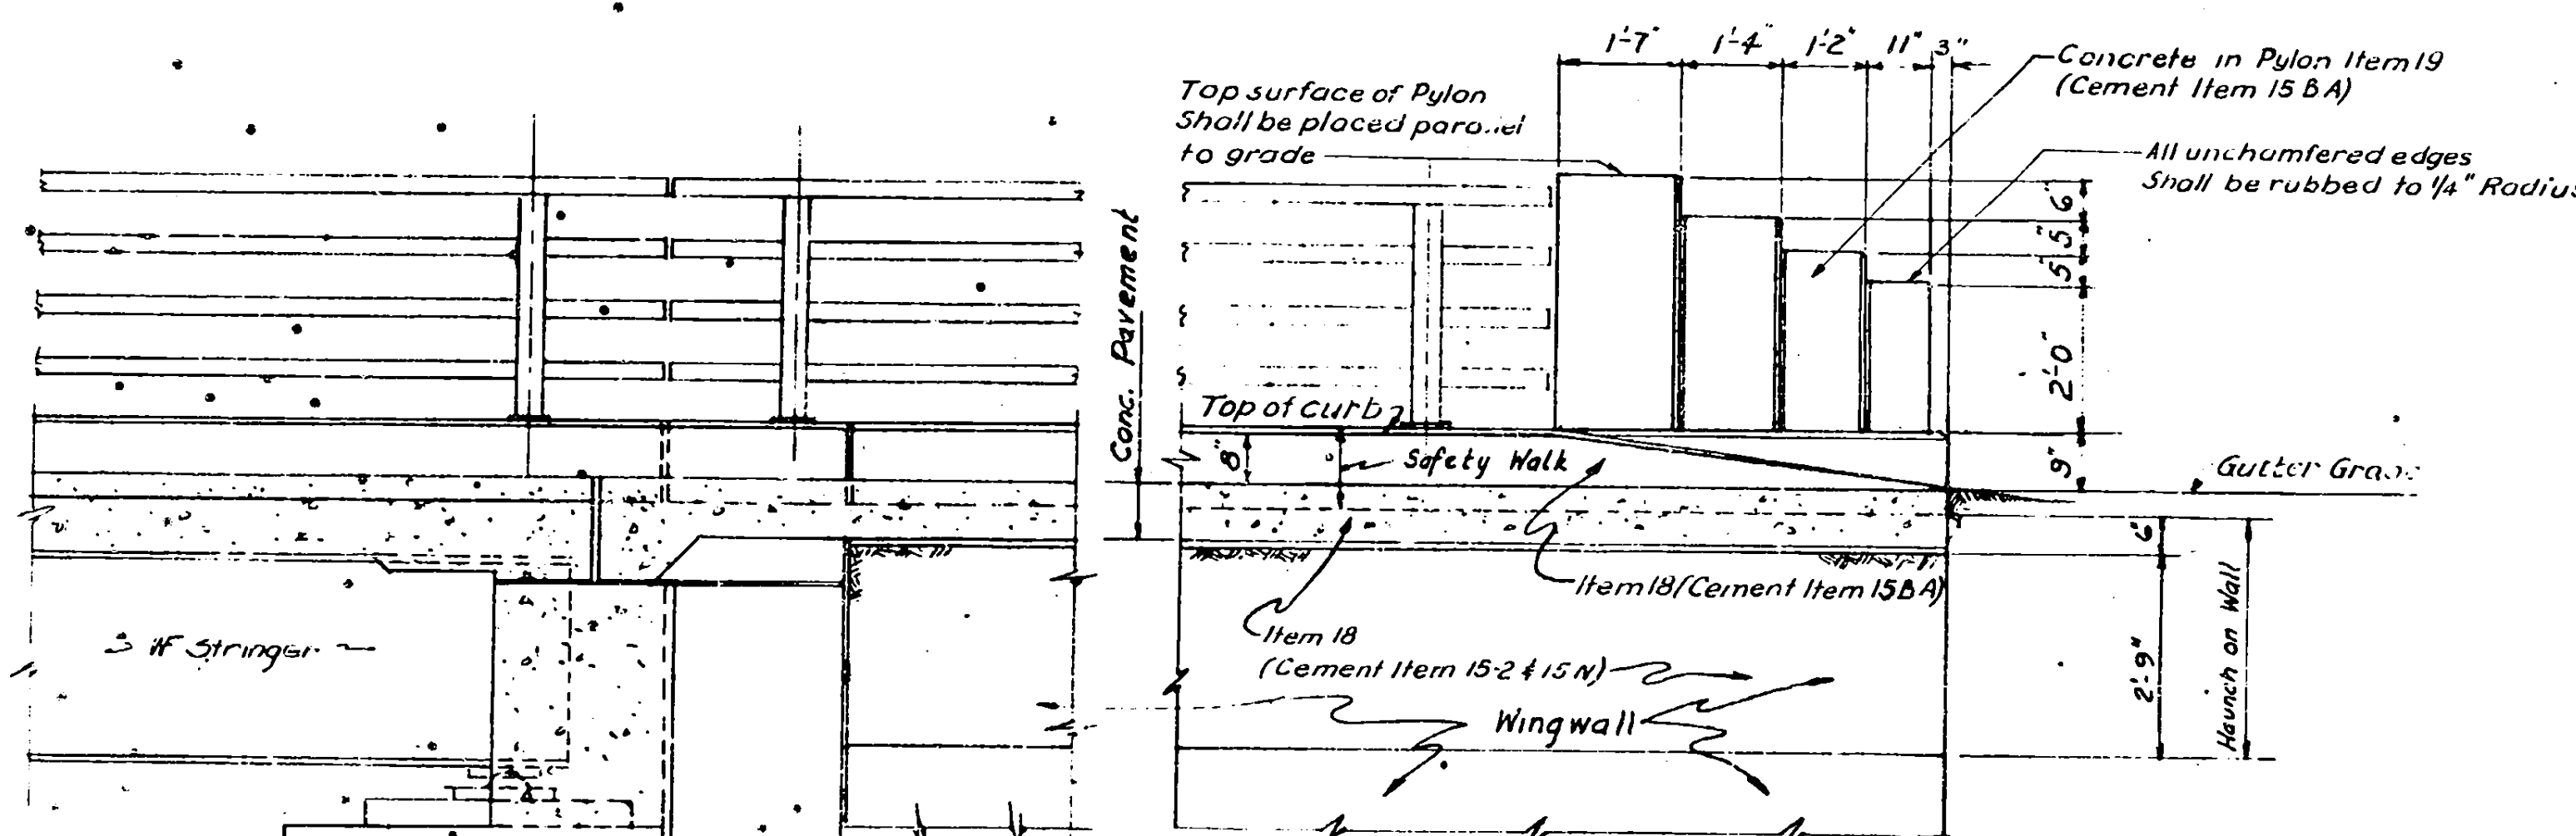 1'-7" 1'-4" 1'-2" 11" 3"
Concrete in Pylon Item 19
(Cement Item 15 BA)
Top surface of Pylon
Shall be placed parallel
to grade
All unchamfered edges
Shall be rubbed to 1/4" Radius
6"
5"
5"
2'-0"
9"
Conc. Pavement
Top of curb
8"
Safety Walk
Gutter
6"
Item 18 (Cement Item 15BA)
Item 18
(Cement Item 15-2 & 15 N)
WF Stringer
Wingwall
2'-9"
Haunch on Wall